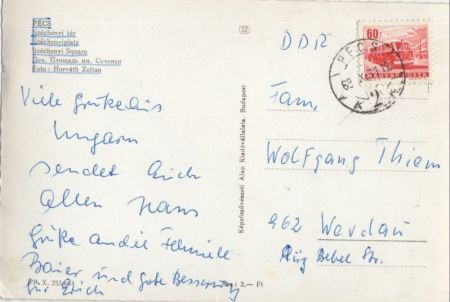 PÉCS
Széchenyi tér
Széchenyiplatz
Széchenyi Square
Печ. Площадь им. Сечени
Foto: Horváth Zoltán
Viele Grüße aus
Ungarn
sendet Euch
allen Hans
Grüße an die Familie
Baier und gute Besserung
für Erich
Képzőművészeti Alap Kiadóvállalata, Budapest
DDR
60
MAGYAR POSTA
PÉCS
Fam.
Wolfgang Thiem
962 Werdau
Aug Bebel Str.
2.— Ft